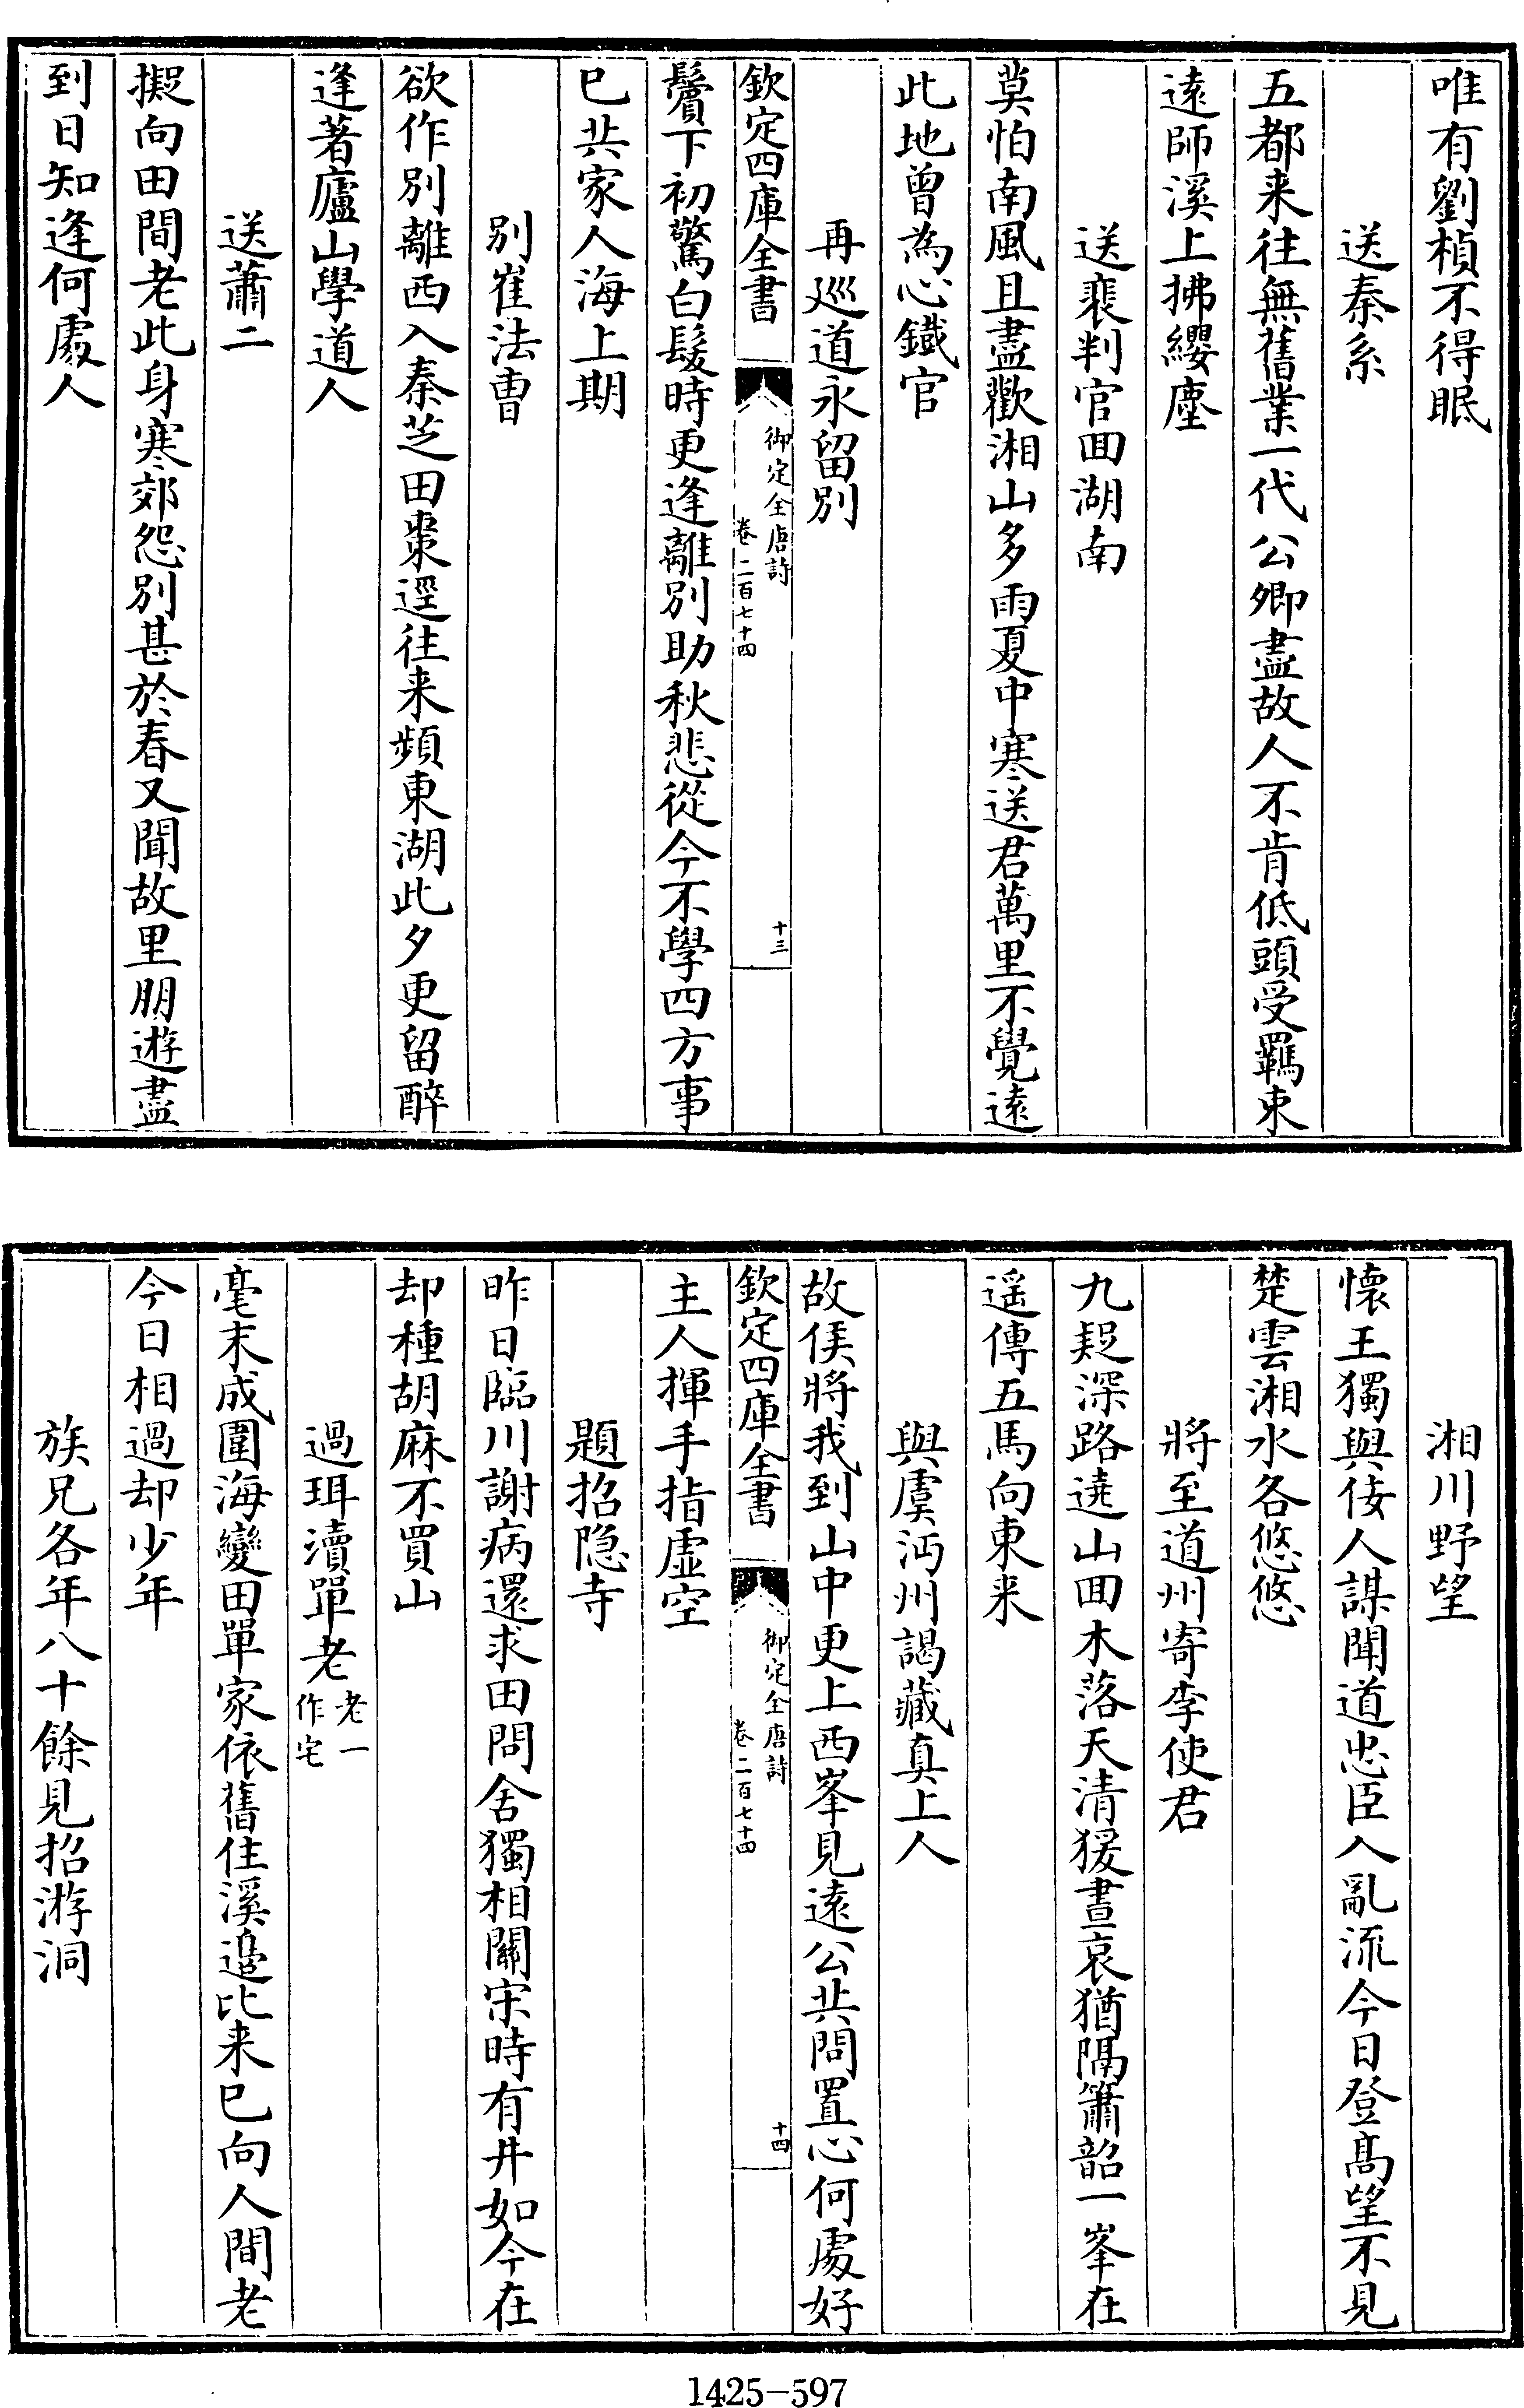 唯有劉楨不得眠
送秦系
五都来往無舊業一代公卿盡故人不肯低頭受羈束
遠師溪上拂纓塵
送裴判官回湖南
莫怕南風且盡歡湘山多雨夏中寒送君萬里不覺遠
此地曾為心鐵官
再巡道永留別
欽定四庫全書
御定全唐詩
卷二百七十四
十三
鬢下初驚白髮時更逢離別助秋悲從今不學四方事
已共家人海上期
別崔法曹
欲作別離西入秦芝田棗逕往来頻東湖此夕更留醉
逢著廬山學道人
送蕭二
擬向田間老此身寒郊怨別甚於春又聞故里朋遊盡
到日知逢何處人
湘川野望
懷王獨與佞人謀聞道忠臣入亂流今日登高望不見
楚雲湘水各悠悠
將至道州寄李使君
九疑深路遶山回木落天清猨晝哀猶隔簫韶一峯在
遥傳五馬向東来
與虞沔州謁藏真上人
故侯將我到山中更上西峯見遠公共問置心何處好
欽定四庫全書
御定全唐詩
卷二百七十四
十四
主人揮手指虛空
題招隐寺
昨日臨川謝病還求田問舍獨相關宋時有井如今在
却種胡麻不買山
過珥瀆單老老一作宅
毫末成圍海變田單家依舊住溪邉比来已向人間老
今日相過却少年
族兄各年八十餘見招游洞
1425-597